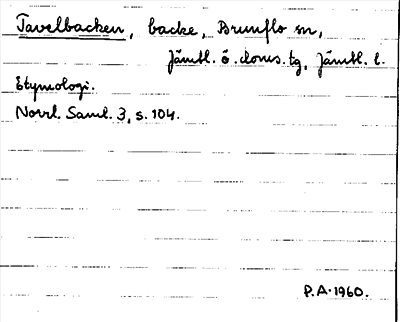 Tavelbacken, backe, Brunflo sn,
Jämtl. ö. doms. tg, Jämtl. l.
Etymologi.
Norrl. Saml. 3, s. 104.
P.A. 1960.